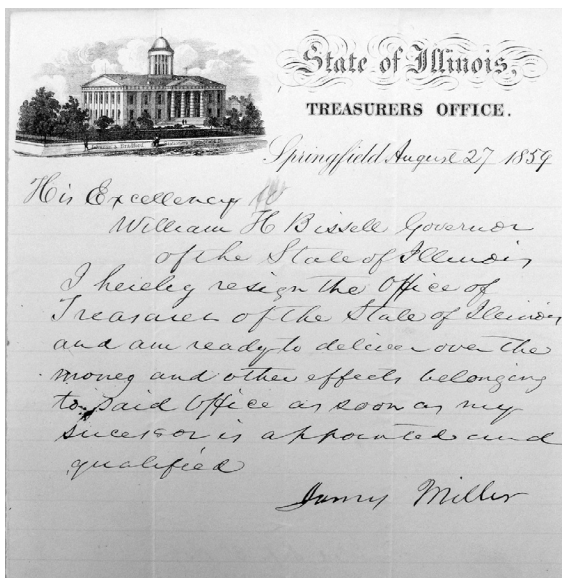 State of Illinois,
TREASURERS OFFICE.
Springfield August 27 1859
His Excellency
William H Bissell Governor
of the State of Illinois
I hereby resign the Office of
Treasurer of the State of Illinois
and am ready to deliver over the
money and other effects belonging
to said Office as soon as my
sucessor is appointed and
qualified
James Miller